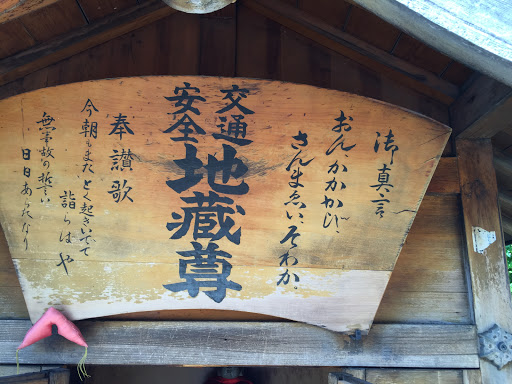 御真言
おん、かかかび、
さんまゑい、そわか、
交通
安全
地蔵尊
奉讃歌
今朝もまたとく起きいでて
詣らばや
無事故の誓い
日日あらたなり